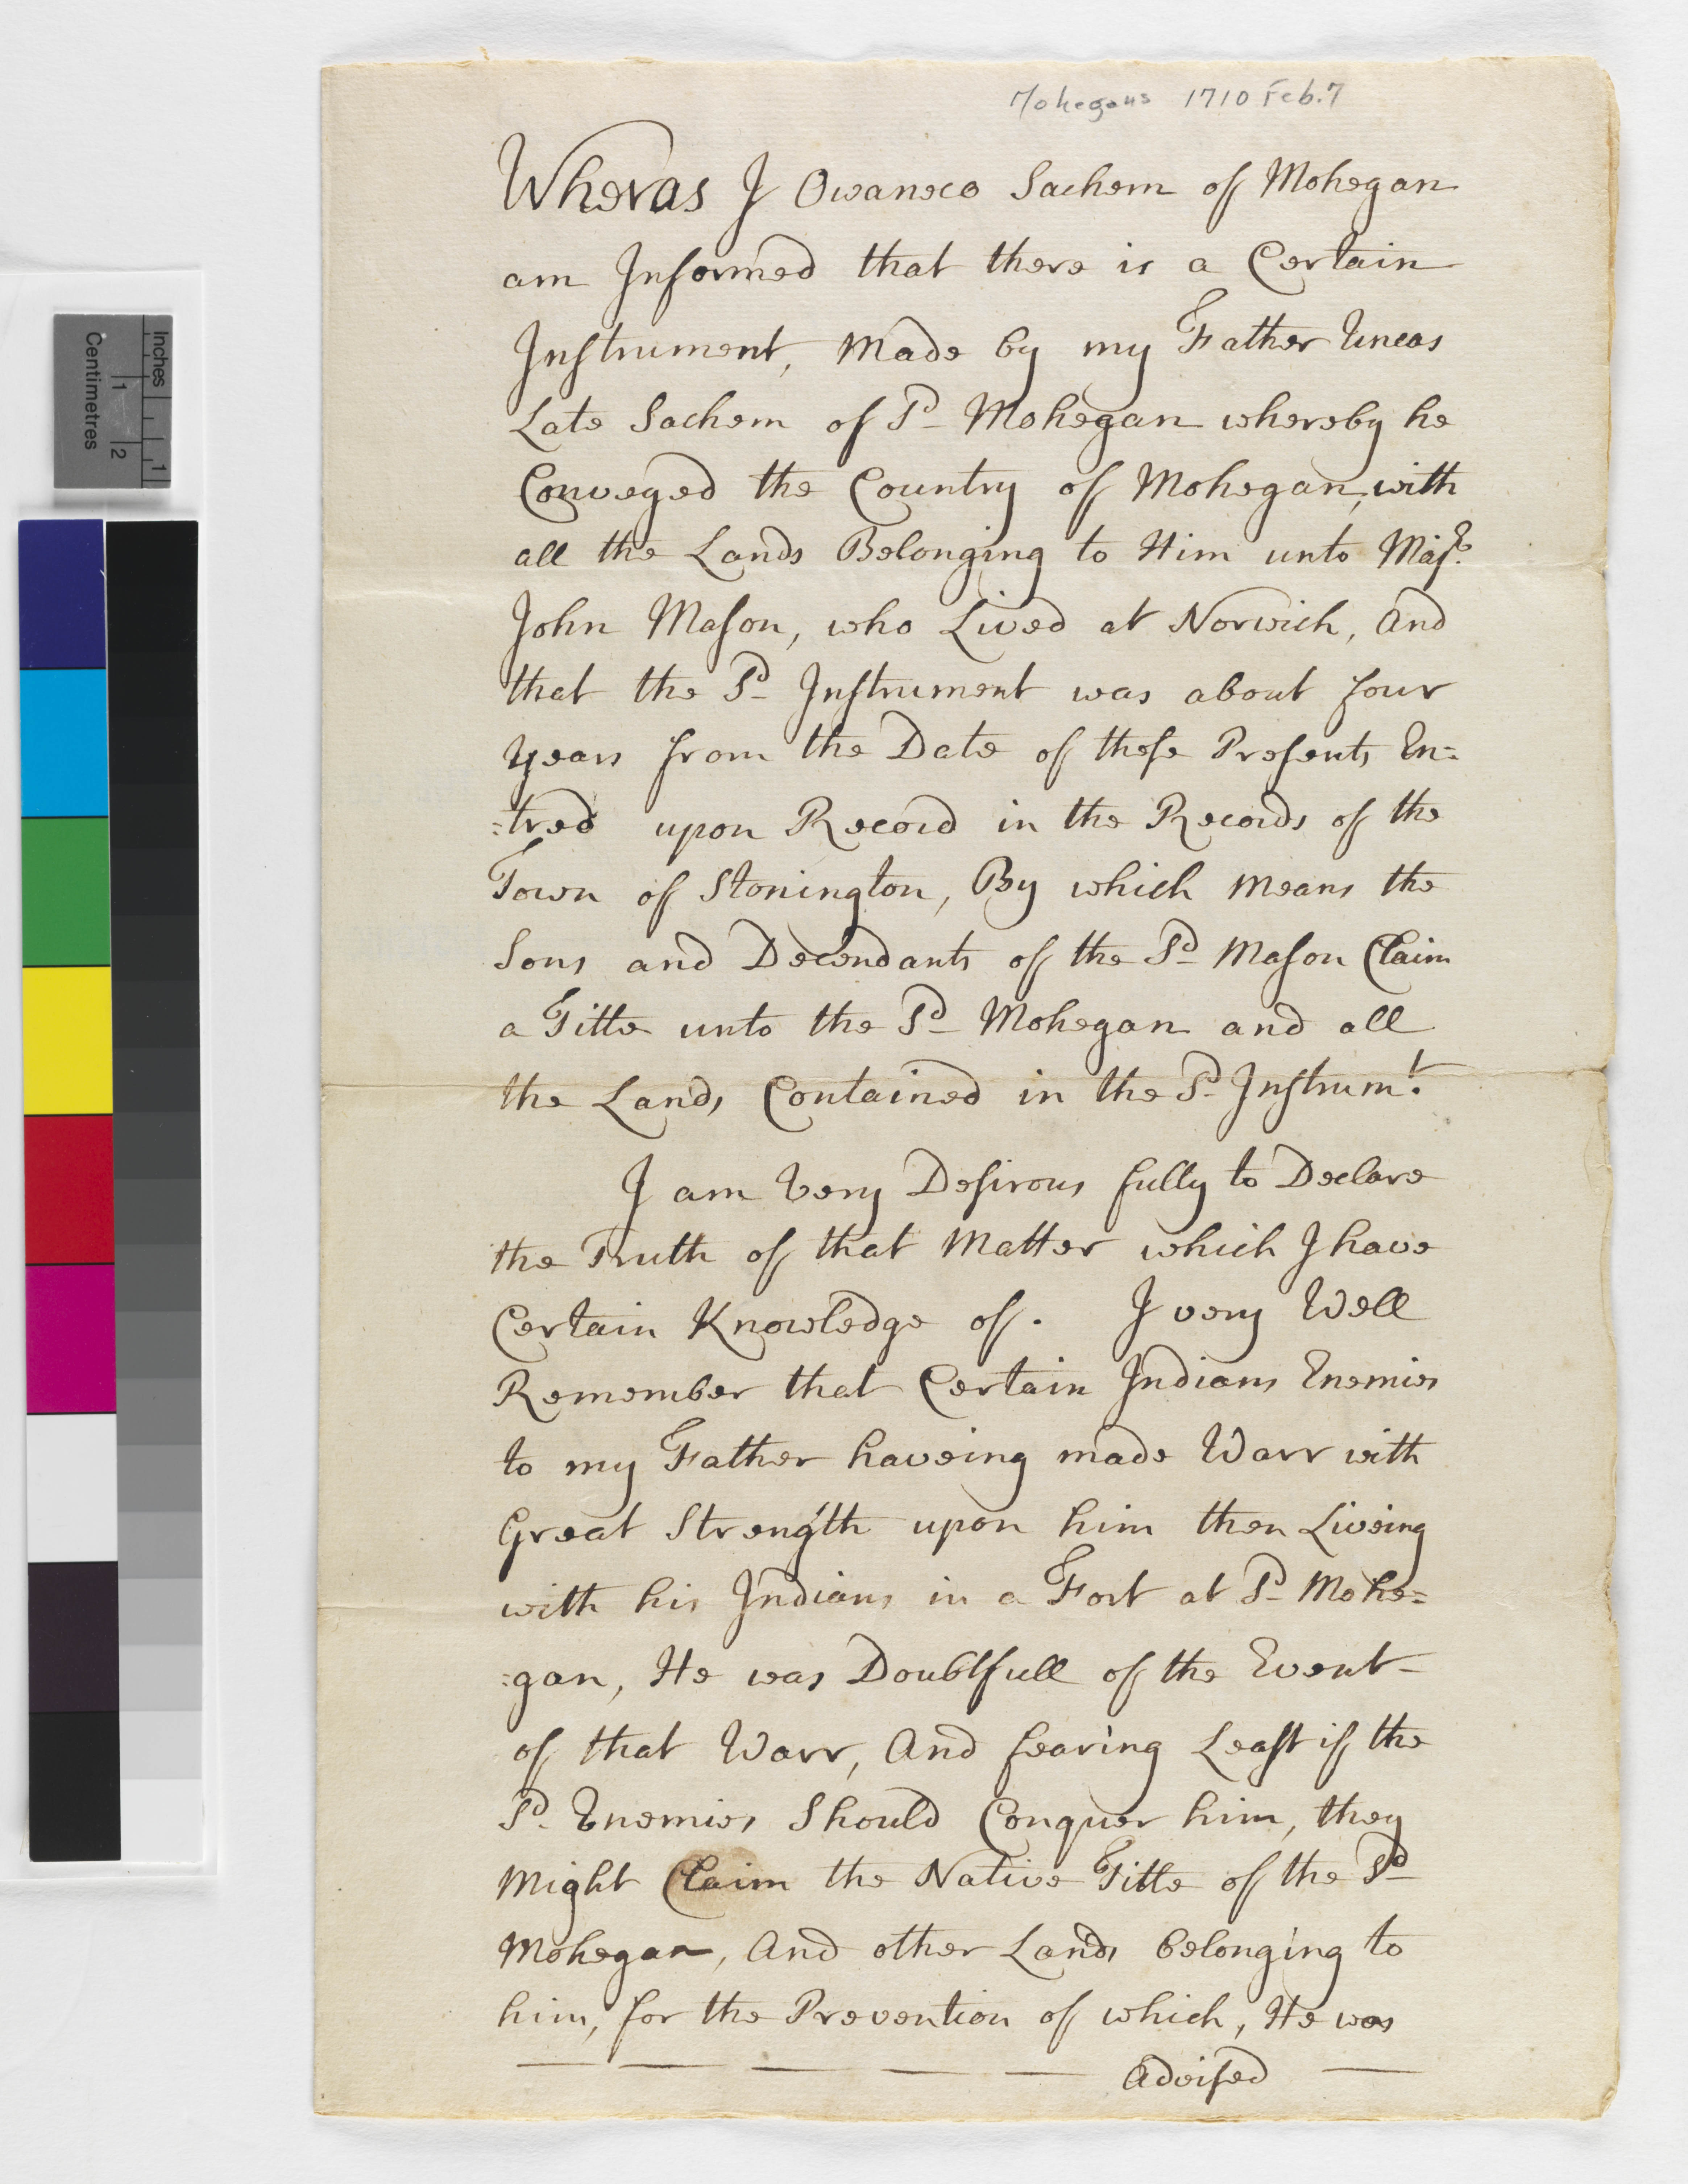 Mohegans 1710 Feb. 7
Wheras I Owaneco Sachem of Mohegan
am Informed that there is a Certain
Instrument, Made by my Father Uncas
Late Sachem of Sd Mohegan whereby he
Conveyed the Country of Mohegan, with
all the Lands Belonging to Him unto Majr.
John Mason, who Lived at Norwich, And
that the Sd Instrument was about four
Years from the Date of these Presents En=
=tred upon Record in the Records of the
Town of Stonington, By which Means the
Sons and Decendants of the Sd Mason Claim
a Title unto the Sd Mohegan and all
the Lands Contained in the Sd Instrumt.
I am Very Desirous fully to Declare
the Truth of that Matter which I have
Certain Knowledge of. I very Well
Remember that Certain Indians Enemies
to my Father haveing made Warr with
Great Strength upon him then Liveing
with his Indians in a Fort at Sd Mohe=
=gan, He was Doubtfull of the Event
of that Warr, And fearing Least if the
Sd. Enemies Should Conquer him, they
Might Claim the Native Title of the Sd
Mohegan, And other Lands belonging to
him, for the Prevention of which, He was
Advised
Inches
1
Centimetres
1 2